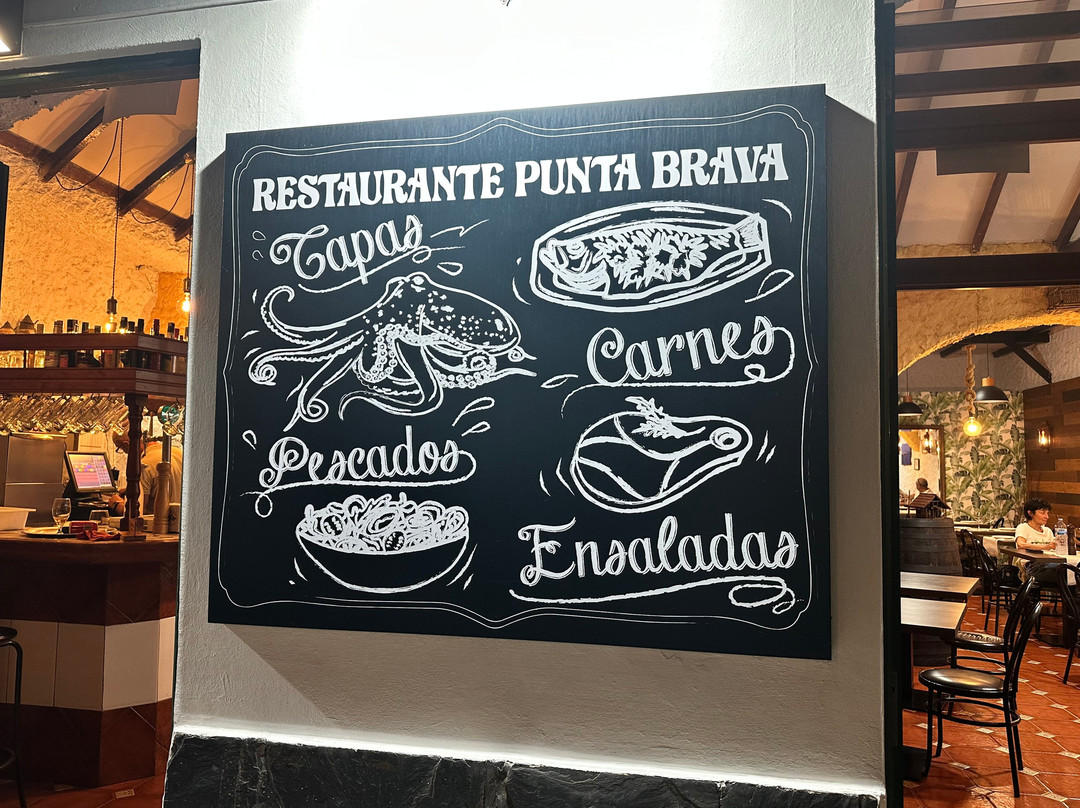 RESTAURANTE PUNTA BRAVA
Tapas
Carnes
Pescados
Ensaladas